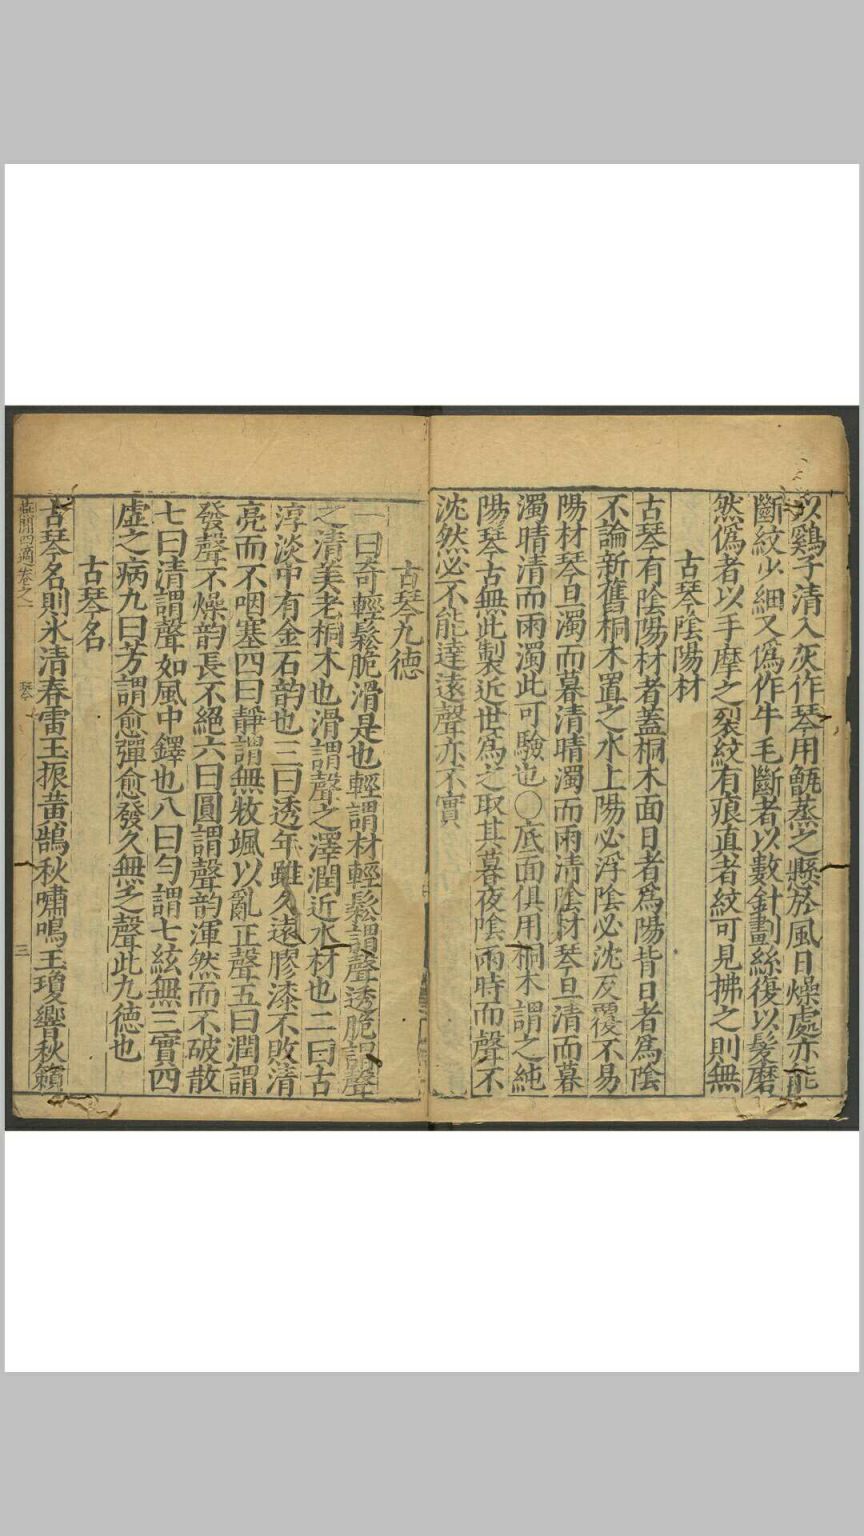 以鷄子清入灰作琴用甑蒸之懸於風日燥處亦能
斷紋少細又僞作牛毛斷者以數針劃絲復以髮磨
然僞者以手摩之裂紋有痕真者紋可見拂之則無
古琴陰陽材
古琴有陰陽材者蓋桐木面日者爲陽背日者爲陰
不論新舊桐木置之水上陽必浮陰必沈反覆不易
陽材琴旦濁而暮清晴濁而雨清陰材琴旦清而暮
濁晴清而雨濁此可驗也〇底面俱用桐木謂之純
陽琴古無此製近世爲之取其暮夜陰雨時而聲不
沈然必不能達遠聲亦不實
古琴九德
一曰奇輕鬆脆滑是也輕謂材輕鬆謂聲透脆謂聲
之清美老桐木也滑謂聲之澤潤近水材也二曰古
淳淡中有金石韵也三曰透年雖久遠膠漆不敗清
亮而不咽塞四曰靜謂無敉颯以亂正聲五曰潤謂
發聲不燥韵長不絕六曰圓謂聲韵渾然而不破散
七曰清謂聲如風中鐸也八曰勻謂七絃無三實四
虛之病九曰芳謂愈彈愈發久無乏聲此九德也
古琴名
古琴名則氷清春雷玉振黄鵠秋嘯鳴玉瓊響秋籟
四適卷之一 琴 三